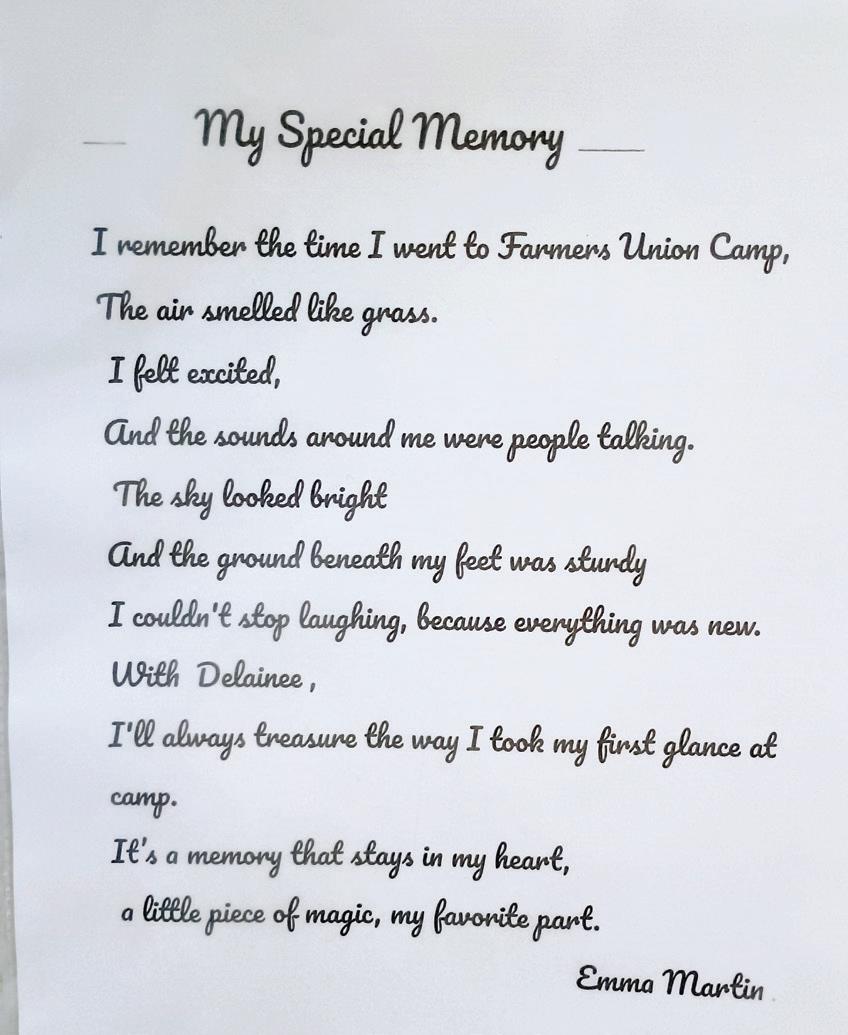 My Special Memory
I remember the time I went to Farmers Union Camp,
The air smelled like grass.
I felt excited,
And the sounds around me were people talking.
The sky looked bright
And the ground beneath my feet was sturdy
I couldn't stop laughing, because everything was new.
With Delainee,
I'll always treasure the way I took my first glance at
camp.
It's a memory that stays in my heart,
a little piece of magic, my favorite part.
Emma Martin